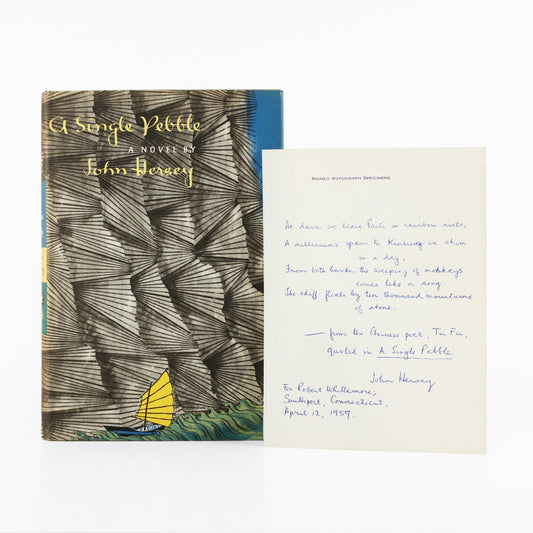 A Single Pebble
A NOVEL BY
John Hersey
SIGNED AUTOGRAPH SPECIMENS
At dawn we leave Paiti in rainbow mists,
A millennium's span to Kinling we skim
in a day,
From both banks the weeping of monkeys
comes like a song.
The skiff floats by ten thousand mountains
of stone.
— from the Chinese poet, Tu Fu,
quoted in A Single Pebble
John Hersey
For Robert Whittemore;
Southport, Connecticut,
April 12, 1957.